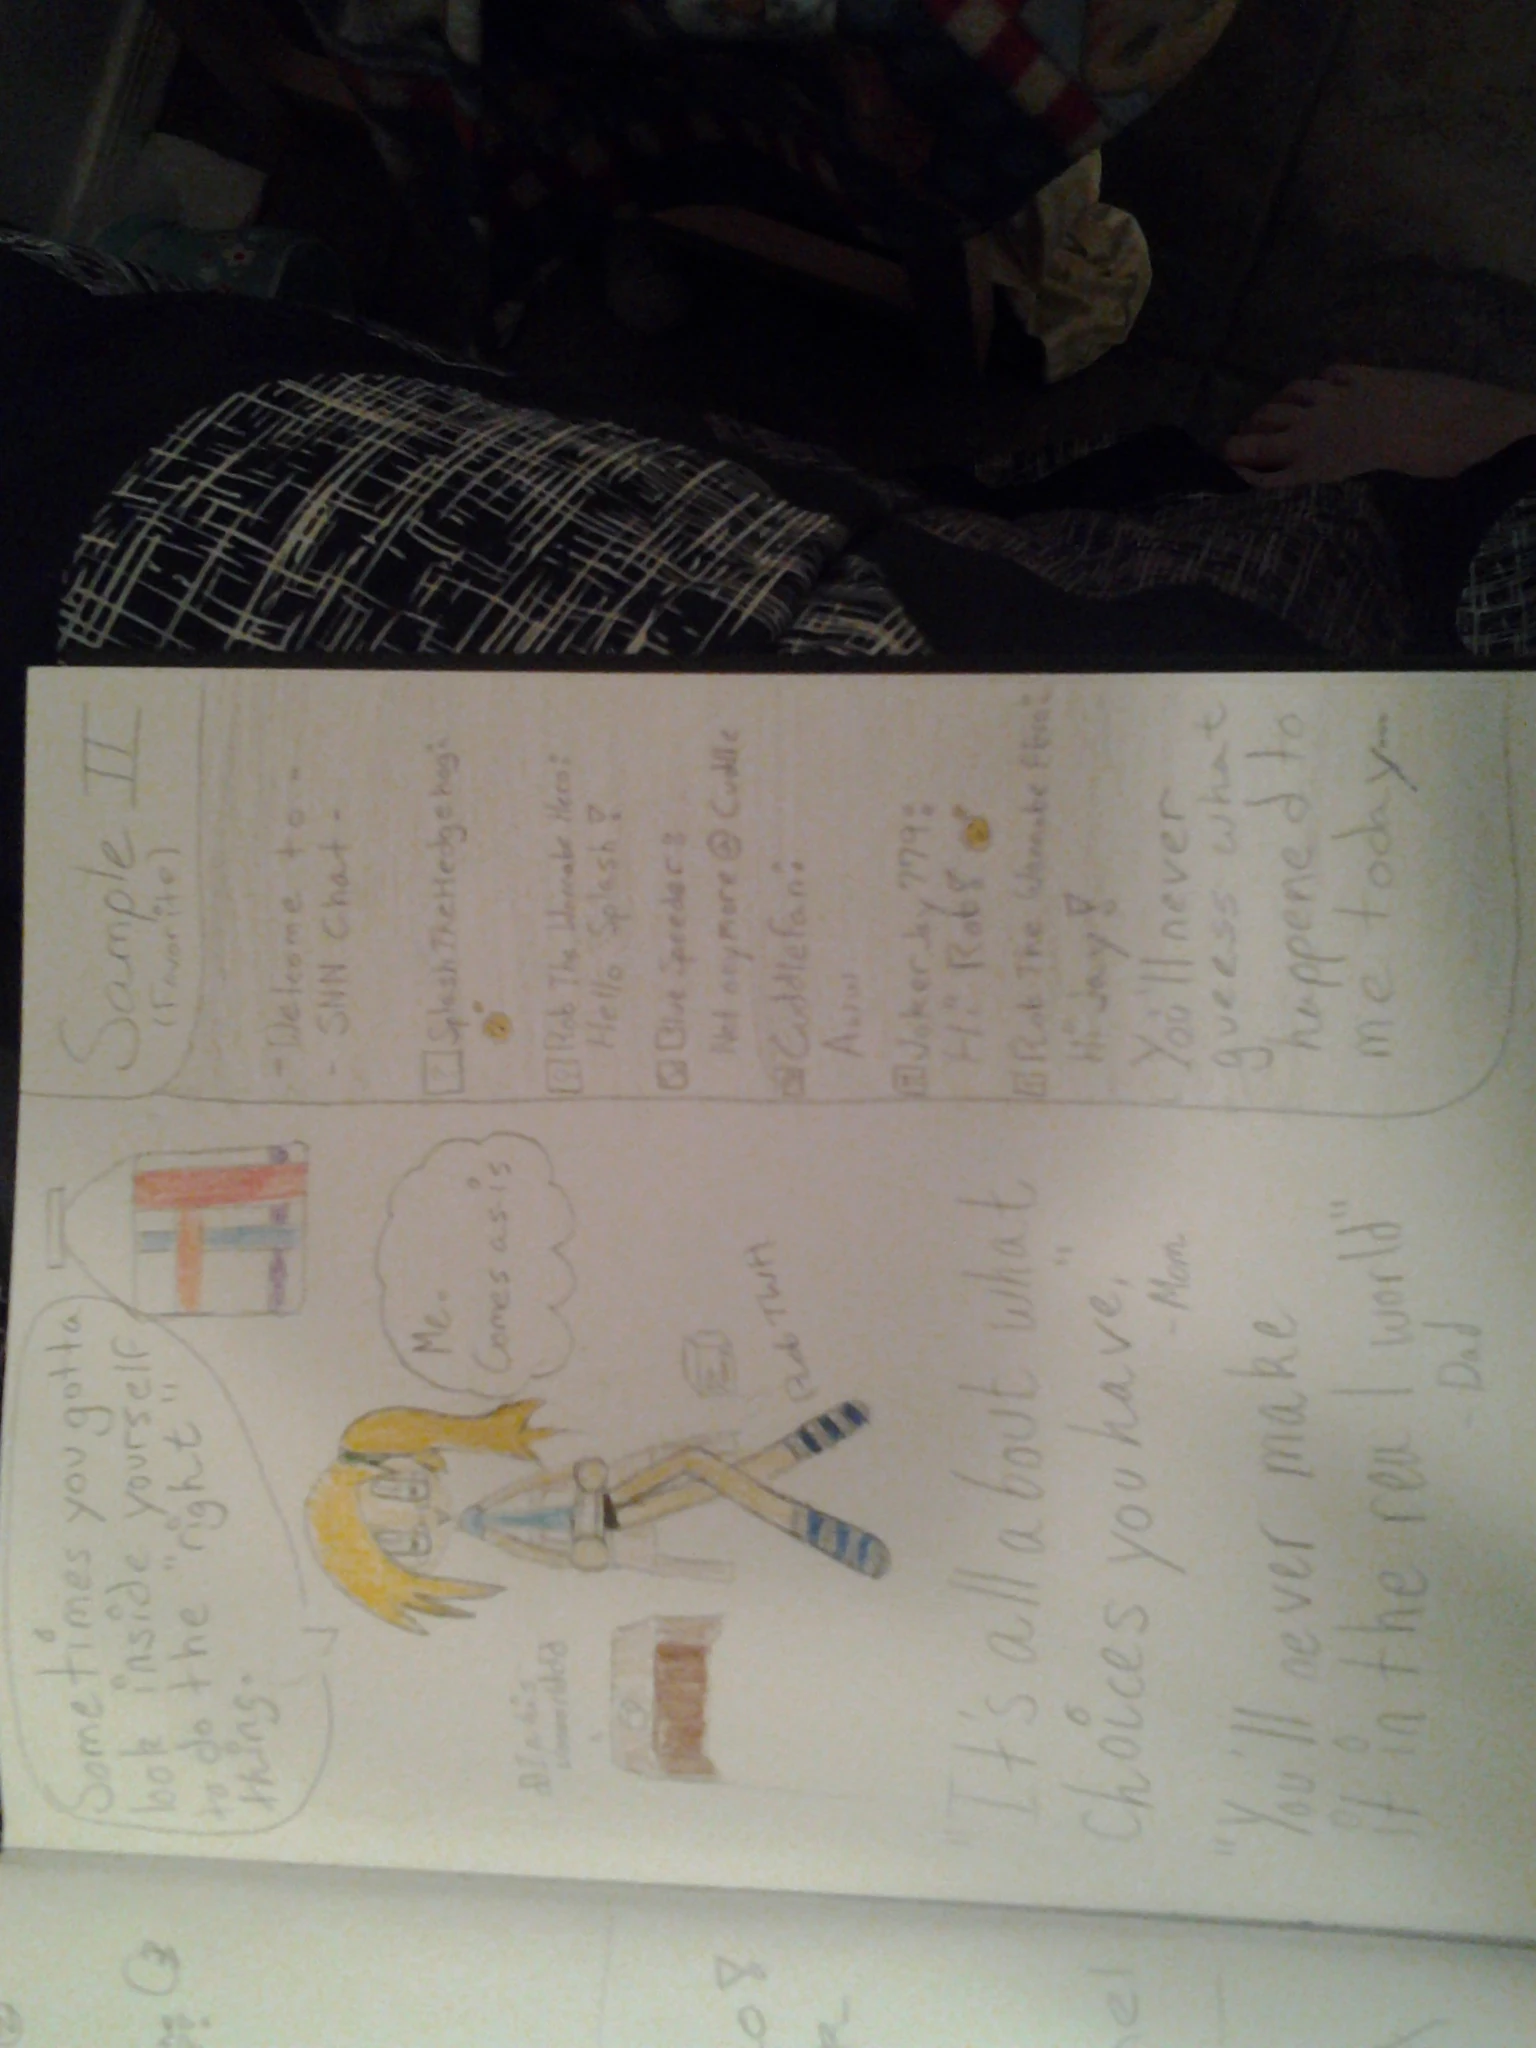 Sometimes you gotta
look inside yourself
to do the "right"
thing.
Sample II
(Favorite)
-Welcome to-
- SNN Chat -
SplashTheHedgehog:
Rob The Wannabe Hero:
Hello Splash!
Blue Speeder:
Not anymore @ Cuddle
CuddleFan:
Aww
Jokerjay779:
Hi Rob8
Rob The Wannabe
Hi Jay!
You'll never
guess what
happened to
me today...
Me.
Comes as-is
Rob TWH
"It's all about what
choices you have,"
- Mom
"You'll never make
it in the real world"
- Dad